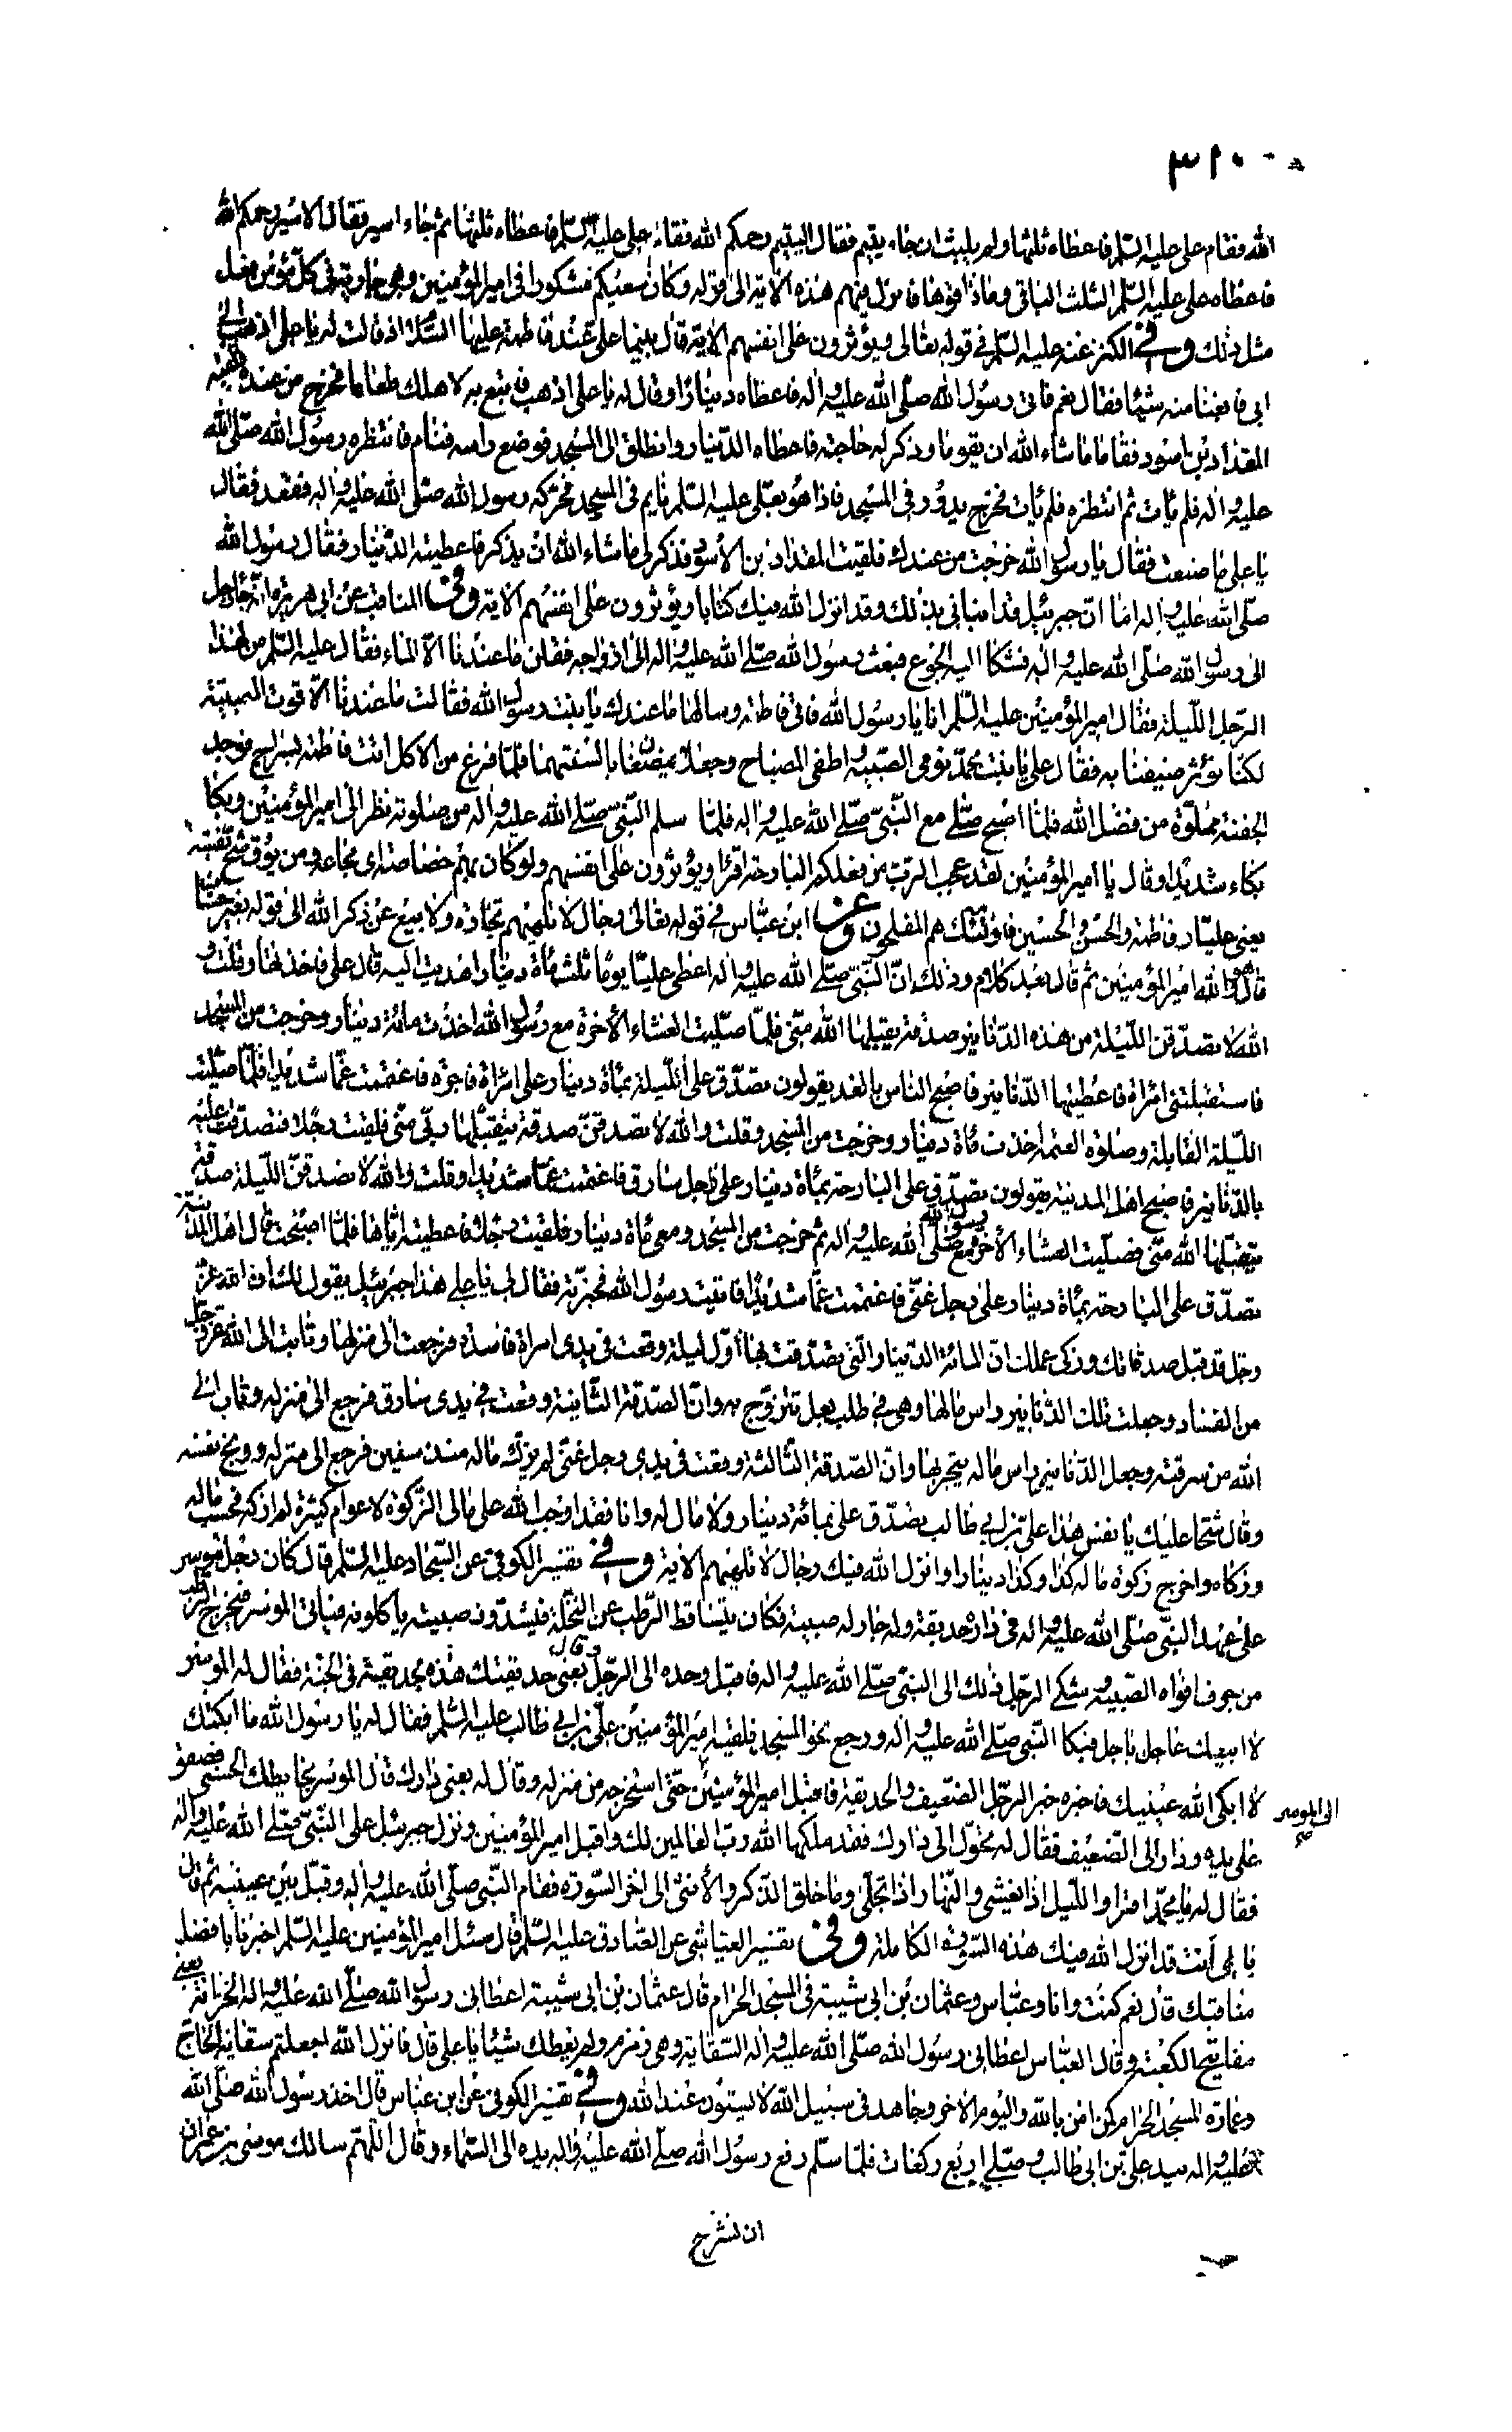 ٣١٠
الله فقام على عليه السّلم فاعطاه ثلثها ولم يلبث ان جاء يتيم فقال اليتيم رحمكم الله فقام على عليه السّلم فاعطاه ثلثها ثم جاء اسير فقال الاسير رحمكم الله
فاعطاه على عليه السّلم الثلث الباقى وما ذاقوها فانزل فيهم هذه الاية الى قوله وكان سعيكم مشكورا فى امير المؤمنين وهى جارية فى كلّ مؤمن فعل
مثل ذلك وفى الكنز عنه عليه السّلم فى قوله تعالى ويؤثرون على انفسهم الاية قال بينما على عند فاطمة عليها السّلم اذ قالت له يا على اذهب الى
ابى فابغنا منه شيئا فقال نعم فاتى رسول الله صلّى الله عليه واله فاعطاه دينارا وقال له يا على اذهب فابتع به لاهلك طعاما فخرج من عنده فلقيه
المقداد بن اسود فقاما ما شاء الله ان يقوما وذكر له حاجته فاعطاه الدّينار وانطلق الى المسجد فوضع راسه فنام فانتظره رسول الله صلّى الله
عليه واله فلم يأت ثم انتظره فلم يأت فخرج يدور فى المسجد فاذا هو بعلى عليه السّلم نايم فى المسجد فحرّكه رسول الله صلّى الله عليه واله فقعد فقال
يا على ما صنعت فقال يا رسول الله خرجت من عندك فلقيت المقداد بن الأسود فذكر لى ما شاء الله ان يذكر فاعطيته الدّينار فقال رسول الله
صلّى الله عليه واله اما انّ جبرئيل قد انبأنى بذلك وقد انزل الله فيك كتابا ويؤثرون على انفسهم الاية وفى المناقب عن ابى هريره انّه جاء رجل
الى رسول الله صلّى الله عليه واله فشكا اليه الجوع فبعث رسول الله صلّى الله عليه واله الى ازواجه فقلن ما عندنا الّا الماء فقال عليه السّلم من لهذا
الرّجل اللّيلة فقال امير المؤمنين عليه السّلم انا يا رسول الله فاتى فاطمة وسالها ما عندك يا بنت رسول الله فقالت ما عندنا الّا قوت الصبية
لكنّا نؤثر ضيفنا به فقال على يا بنت محمّد نومى الصّبية واطفى المصباح وجعلا يمضغان بالسنتهما فلمّا فرغ من الاكل اتت فاطمة بسراج فوجد
الجفنة مملوّة من فضل الله فلمّا اصبح صلّى مع النّبىّ صلّى الله عليه واله فلمّا سلم النّبىّ صلّى الله عليه واله من صلوته نظر الى امير المؤمنين وبكا
بكاء شديدا وقال يا امير المؤمنين لقد عجب الرّب من فعلكم البارحة اقرا ويؤثرون على انفسهم ولو كان بهم خصاصة اى مجاعة ومن يوق شحّ نفسه
يعنى عليّا وفاطمة والحسن والحسين فاولئك هم المفلحون وعن ابن عبّاس فى قوله تعالى رجال لا تلهيهم تجارة ولا بيع عن ذكر الله الى قوله بغير حساب
قال هو والله امير المؤمنين ثم قال بعد كلام وذلك انّ النّبىّ صلّى الله عليه واله اعطى عليّا يوما ثلثمأة دينار اهديت اليه قال على فاخذتها وقلت و
الله لاتصدّقنّ اللّيلة من هذه الدّنانير صدقة يقبلها الله منّى فلمّا صلّيت العشاء الأخرة مع رسول الله اخذت مائة دينار وخرجت من المسجد
فاستقبلتنى امرأة فاعطيتها الدّنانير فاصبح الناس بالغد يقولون تصدّق على اللّيلة بمأة دينار على امرأة فاجرة فاغتممت غمّا شديدا فلمّا صلّيت
اللّيلة القابلة صلوة العتمة اخذت مأة دينار وخرجت من المسجد وقلت والله لاتصدقنّ صدقة يتقبّلها ربّى منّى فلقيت رجلا فتصدقت عليه
بالدّنانير فاصبح اهل المدينة يقولون تصدّق على البارحة بمأة دينار على رجل سارق فاغتممت غمّا شديدا وقلت والله لاتصدقنّ اللّيلة صدقة
يتقبّلها الله منّى فصلّيت العشاء الأخرة مع رسول الله صلّى الله عليه واله ثم خرجت من المسجد ومعى مأة دينار فلقيت رجلا فاعطيته ايّاها فلمّا اصبحت قال اهل المدينة
تصدّق على البارحة بمأة دينار على رجل غنىّ فاغتممت غمّا شديدا فاتيت رسول الله فخبّرته فقال لى يا على هذا جبرئيل يقول لك ان الله عزّ
وجلّ قد قبل صدقاتك وزكى عملك انّ المائة الدّينار الّتى تصدّقت بها أوّل ليلة وقعت فى يدى امرأة فاسدة فرجعت الى منزلها وتابت الى الله عزّ وجلّ
من الفساد وجعلت تلك الدّنانير راس مالها وهى فى طلب بعل تتزوّج به وانّ الصّدقة الثّانية وقعت فى يدى سارق فرجع الى منزله وتاب الى
الله من سرقته وجعل الدّنانير راس ماله يتجر بها وانّ الصّدقة الثّالثة وقعت فى يدى رجل غنىّ لم يزكّ ماله منذ سنين فرجع الى منزله ووبخ نفسه
وقال شحّا عليك يا نفس هذا على بن ابى طالب تصدّق على بمائة دينار ولا مال له وانا فقد اوجب الله على مالى الزّكوة لاعوام كثيرة لم ازكه فحسب ماله
وزكاه واخرج زكوة ماله كذا وكذا دينارا وانزل الله فيك رجال لا تلهيهم الاية وفى تفسير الكوفى عن السّجاد عليه السّلم قال كان رجل موسر
على عهد النبّى صلّى الله عليه واله فى دار حديقة وله جار له صبية فكان يتساقط الرّطب عن النّخلة فيشدّون صبيته ياكلونه فياتى الموسر فيخرج الرّطب
من جوف افواه الصّبية وشكى الرّجل ذلك الى النبّى صلّى الله عليه واله فاقبل وحده الى الرّجل وقال بعنى حديقتك هذه بحديقة فى الجنّة فقال له الموسر
لا ابيعك عاجل باجل فبكا النّبى صلّى الله عليه واله ورجع نحو المسجد فلقيه امير المؤمنين علىّ بن ابى طالب عليه السّلم فقال له يا رسول الله ما ابكتك
لا ابكى الله عينيك فاخبره خبر الرّجل الضّعيف والحديقة فاقبل امير المؤمنين حتّى استخرجه من منزله وقال له بعنى دارك قال الموسر بحايطك الحسنى فصفق
على يده ودار الى الضّعيف فقال له تحوّل الى دارك فقد ملكها الله ربّ العالمين لك واقبل امير المؤمنين ونزل جبرئيل على النّبىّ صلّى الله عليه واله
فقال له يا محمّد اقرا واللّيل اذا يغشى والنّهار اذا تجلّى وما خلق الذّكر والأنثى الى اخر السّورة فقام النّبى صلّى الله عليه واله وقبّل بين عينيه ثم قال
بابى انت قد انزل الله فيك هذه السّورة الكاملة وفى تفسير العياشى عن الصّادق عليه السّلم قال سئل امير المؤمنين عليه السّلم اخبرنا بافضل
مناقبك قال نعم كنت وانا وعبّاس وعثمان بن ابى شيبة فى المسجد الحرام قال عثمان بن ابى شيبة اعطانى رسول الله صلّى الله عليه واله الخزانة يعنى
مفاتيح الكعبة وقال العبّاس اعطانى رسول الله صلّى الله عليه واله السّقاية وهى زمزم ولم يعطك شيئا يا على قال فانزل الله اجعلتم سقاية الحاجّ
وعمارة المسجد الحرام كمن امن بالله واليوم الاخر وجاهد فى سبيل الله لا يستون عند الله وفى تفسير الكوفى عن ابن عباس قال اخذ رسول الله صلّى الله
عليه واله بيد على بن ابى طالب وصلّى اربع ركعات فلمّا سلّم رفع رسول الله صلّى الله عليه واله يده الى السّماء وقال اللّهم سالك موسى بن عمران
ان تشرح